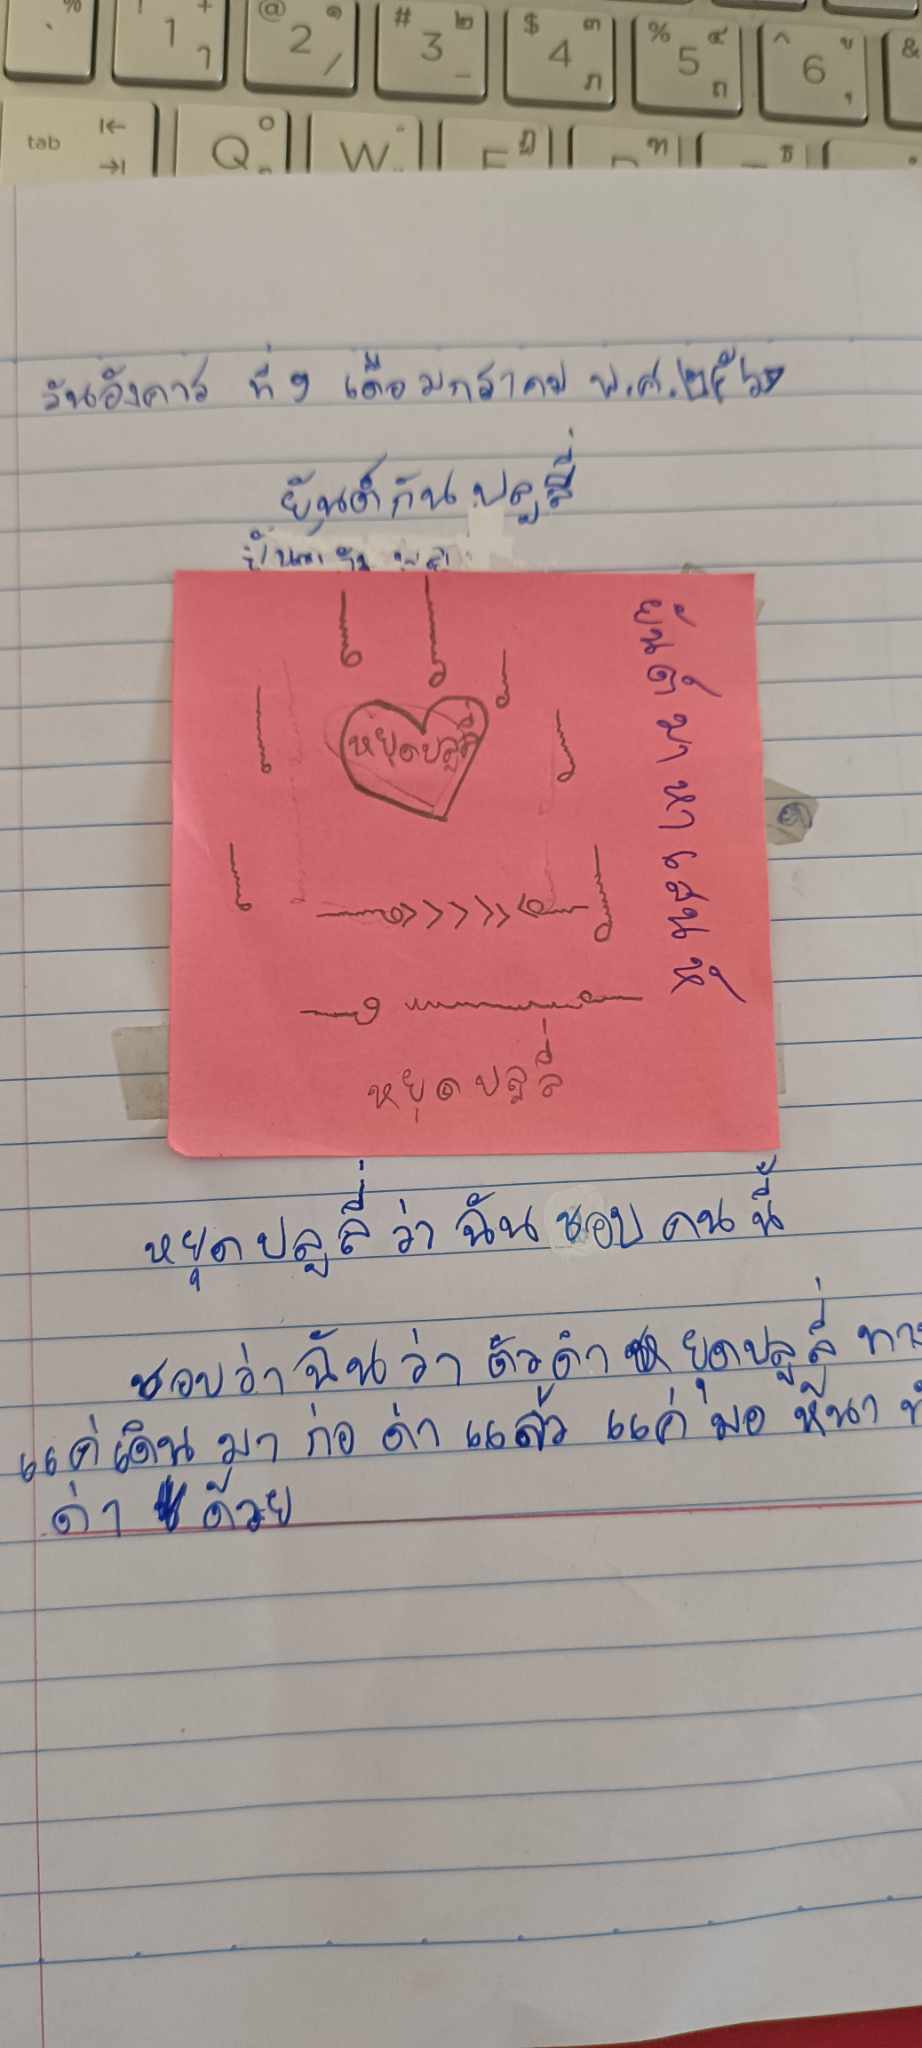 % ` ! 1 + ๅ @ 2 ๑ / # 3 ๒ _ $ 4 ๓ ภ % 5 ๔ ถ ^ 6 ู ุ &
tab Q ๐ W " E ฎ ฑ ธ
วันอังคาร ที่ ๑ เดือมกราคม พ.ศ.๒๕๖๒
ยันต์กันปลูลี่
ยันต์มาหาเสนห์
หยุดปลูลี่
หยุดปลูลี่
หยุดปลูลี่ว่าฉันชอบคนนี้
ชอบว่าฉันว่าตัวดำ หยุดปลูลี่
แค่เดินมาก่อด่าแล้ว แค่มอหีนา
ด่า ด้วย